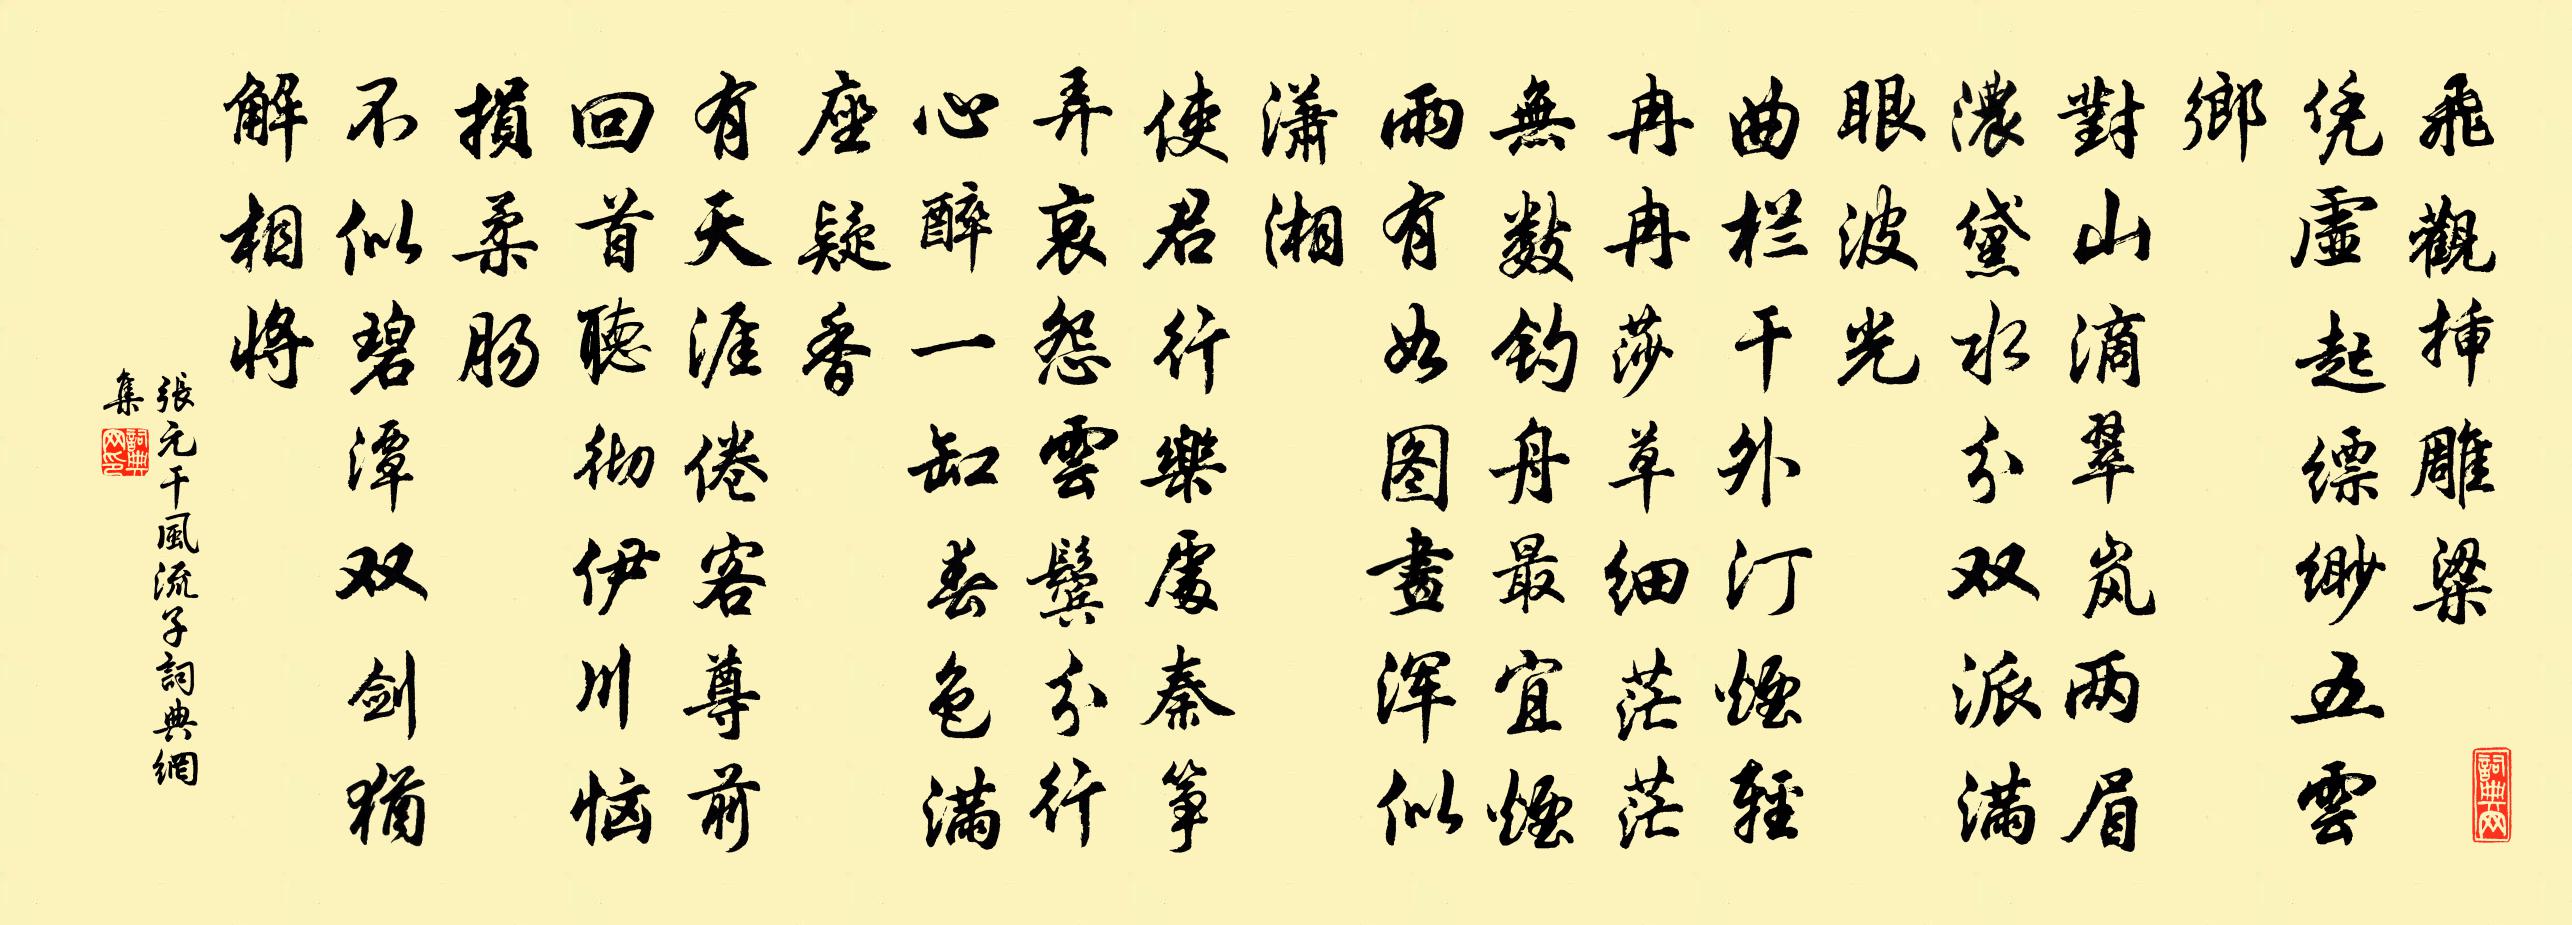 飛觀插雕梁
凭虛起缥缈五雲
鄉
對山滴翠岚两眉
濃黛水分双派滿
眼波光
曲栏干外汀煙輕
冉冉莎草细茫茫
無数钓舟最宜煙
雨有如图畫浑似
潇湘
使君行樂處秦筝
弄哀怨雲鬓分行
心醉一缸春色滿
座疑香
有天涯倦客尊前
回首聽彻伊川恼
損柔肠
不似碧潭双剑猶
解相将
張元干風流子詞典網
集
詞典网印
詞典网